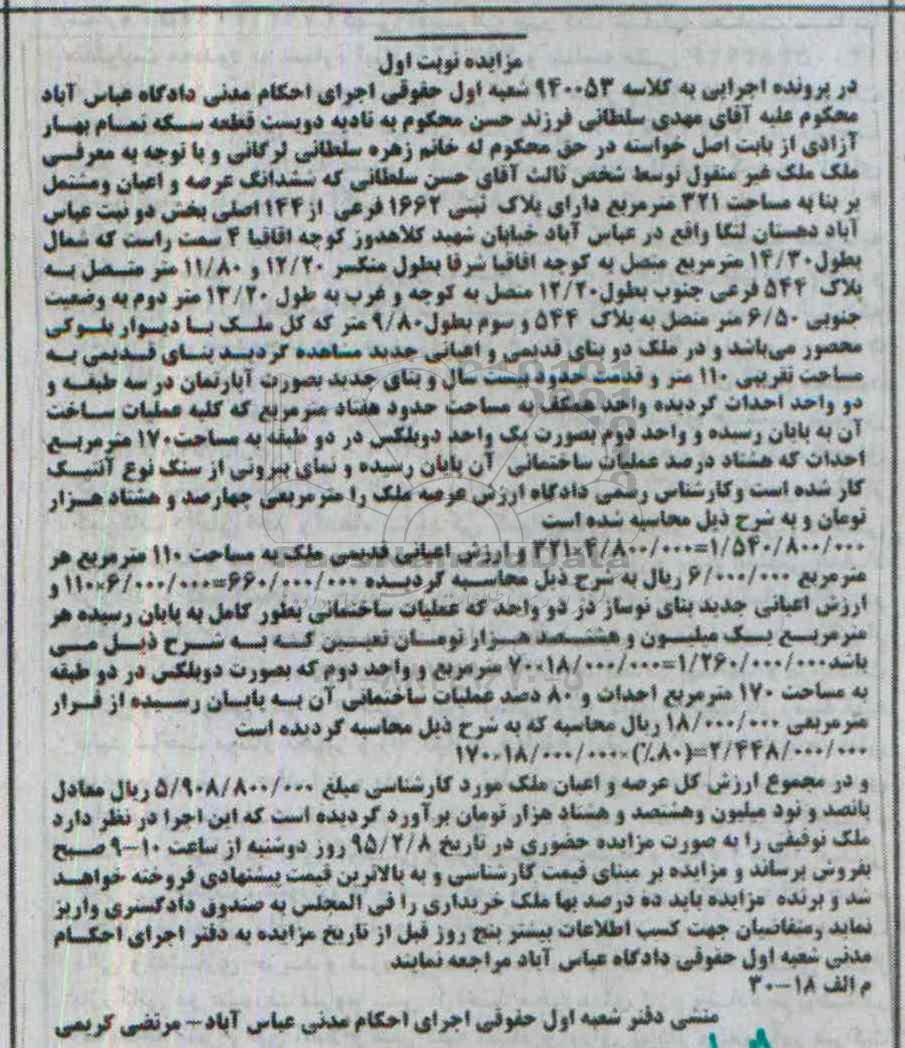 مزایده نوبت اول
در پرونده اجرایی به کلاسه ۹۴۰۰۵۳ شعبه اول حقوقی اجرای احکام مدنی دادگاه عباس آباد
محکوم علیه آقای مهدی سلطانی فرزند حسن محکوم به تادیه دویست قطعه سکه تمام بهار
آزادی از بابت اصل خواسته در حق محکوم له خانم زهره سلطانی لرگانی و با توجه به معرفی
ملک ملک غیر منقول توسط شخص ثالث آقای حسن سلطانی که ششدانگ عرصه و اعیان ومشتمل
بر بنا به مساحت ۳۲۱ مترمربع دارای پلاک ثبتی ۱۶۶۲ فرعی از۱۴۴ اصلی بخش دو ثبت عباس
آباد دهستان لنگا واقع در عباس آباد خیابان شهید کلاهدوز کوچه اقاقیا ۴ سمت راست که شمال
بطول۱۴/۳۰ مترمربع متصل به کوچه اقاقیا شرقا بطول منکسر ۱۲/۲۰ و ۱۱/۸۰ متر متصل به
پلاک ۵۴۴ فرعی جنوب بطول۱۲/۲۰ متصل به کوچه و غرب به طول ۱۳/۲۰ متر دوم به وضعیت
جنوبی ۶/۵۰ متر متصل به پلاک ۵۴۴ و سوم بطول۹/۸۰ متر که کل ملک با دیوار بلوکی
محصور می‌باشد و در ملک دو بنای قدیمی و اعیانی جدید مشاهده گردید بنای قدیمی به
مساحت تقریبی ۱۱۰ متر و قدمت حدود بیست سال و بنای جدید بصورت آپارتمان در سه طبقه و
دو واحد احداث گردیده واحد همکف به مساحت حدود هفتاد مترمربع که کلیه عملیات ساخت
آن به پایان رسیده و واحد دوم بصورت یک واحد دوبلکس در دو طبقه به مساحت۱۷۰ مترمربع
احداث که هشتاد درصد عملیات ساختمانی آن پایان رسیده و نمای بیرونی از سنگ نوع آنتیک
کار شده است وکارشناس رسمی دادگاه ارزش عرصه ملک را مترمربعی چهارصد و هشتاد هزار
تومان و به شرح ذیل محاسبه شده است
۳۲۱×۴/۸۰۰/۰۰۰=۱/۵۴۰/۸۰۰/۰۰۰ و ارزش اعیانی قدیمی ملک به مساحت ۱۱۰ مترمربع هر
مترمربع ۶/۰۰۰/۰۰۰ ریال به شرح ذیل محاسبه گردیده ۱۱۰×۶/۰۰۰/۰۰۰=۶۶۰/۰۰۰/۰۰۰ و
ارزش اعیانی جدید بنای نوساز در دو واحد که عملیات ساختمانی بطور کامل به پایان رسیده هر
مترمربع یک میلیون و هشتصد هزار تومان تعیین که به شرح ذیل می
باشد۷۰×۱۸/۰۰۰/۰۰۰=۱/۲۶۰/۰۰۰/۰۰۰ مترمربع و واحد دوم که بصورت دوبلکس در دو طبقه
به مساحت ۱۷۰ مترمربع احداث و ۸۰ دصد عملیات ساختمانی آن به پایان رسیده از قرار
مترمربعی ۱۸/۰۰۰/۰۰۰ ریال محاسبه که به شرح ذیل محاسبه گردیده است
۱۷۰×۱۸/۰۰۰/۰۰۰×(٪۸۰)=۲/۴۴۸/۰۰۰/۰۰۰
و در مجموع ارزش کل عرصه و اعیان ملک مورد کارشناسی مبلغ ۵/۹۰۸/۸۰۰/۰۰۰ ریال معادل
پانصد و نود میلیون وهشتصد و هشتاد هزار تومان برآورد گردیده است که این اجرا در نظر دارد
ملک توقیفی را به صورت مزایده حضوری در تاریخ ۹۵/۲/۸ روز دوشنبه از ساعت ۱۰-۹ صبح
بفروش برساند و مزایده بر مبنای قیمت کارشناسی و به بالاترین قیمت پیشنهادی فروخته خواهد
شد و برنده مزایده باید ده درصد بها ملک خریداری را فی المجلس به صندوق دادگستری واریز
نماید ومتقاضیان جهت کسب اطلاعات بیشتر پنج روز قبل از تاریخ مزایده به دفتر اجرای احکام
مدنی شعبه اول حقوقی دادگاه عباس آباد مراجعه نمایند
م الف ۱۸-۳۰
منشی دفتر شعبه اول حقوقی اجرای احکام مدنی عباس آباد- مرتضی کریمی